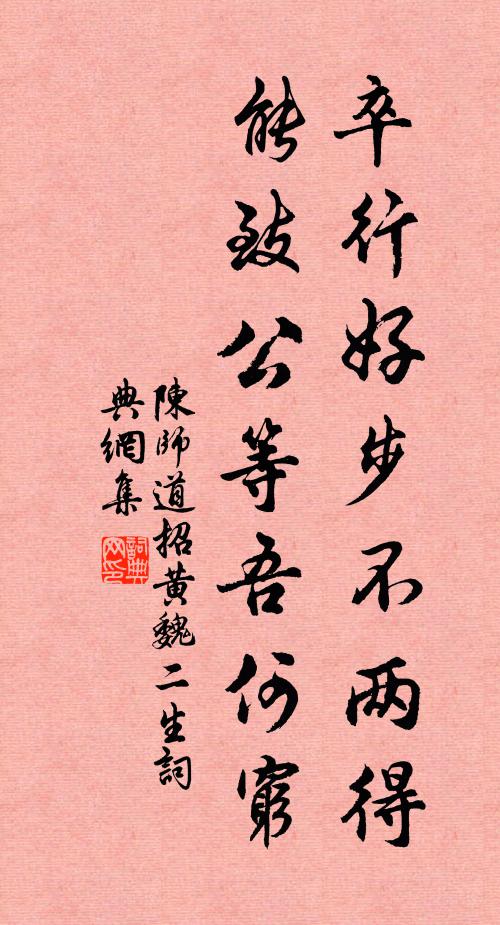 卒行好步不两得
能致公等吾何窮
陳師道招黃魏二生詞
典網集
詞典網印